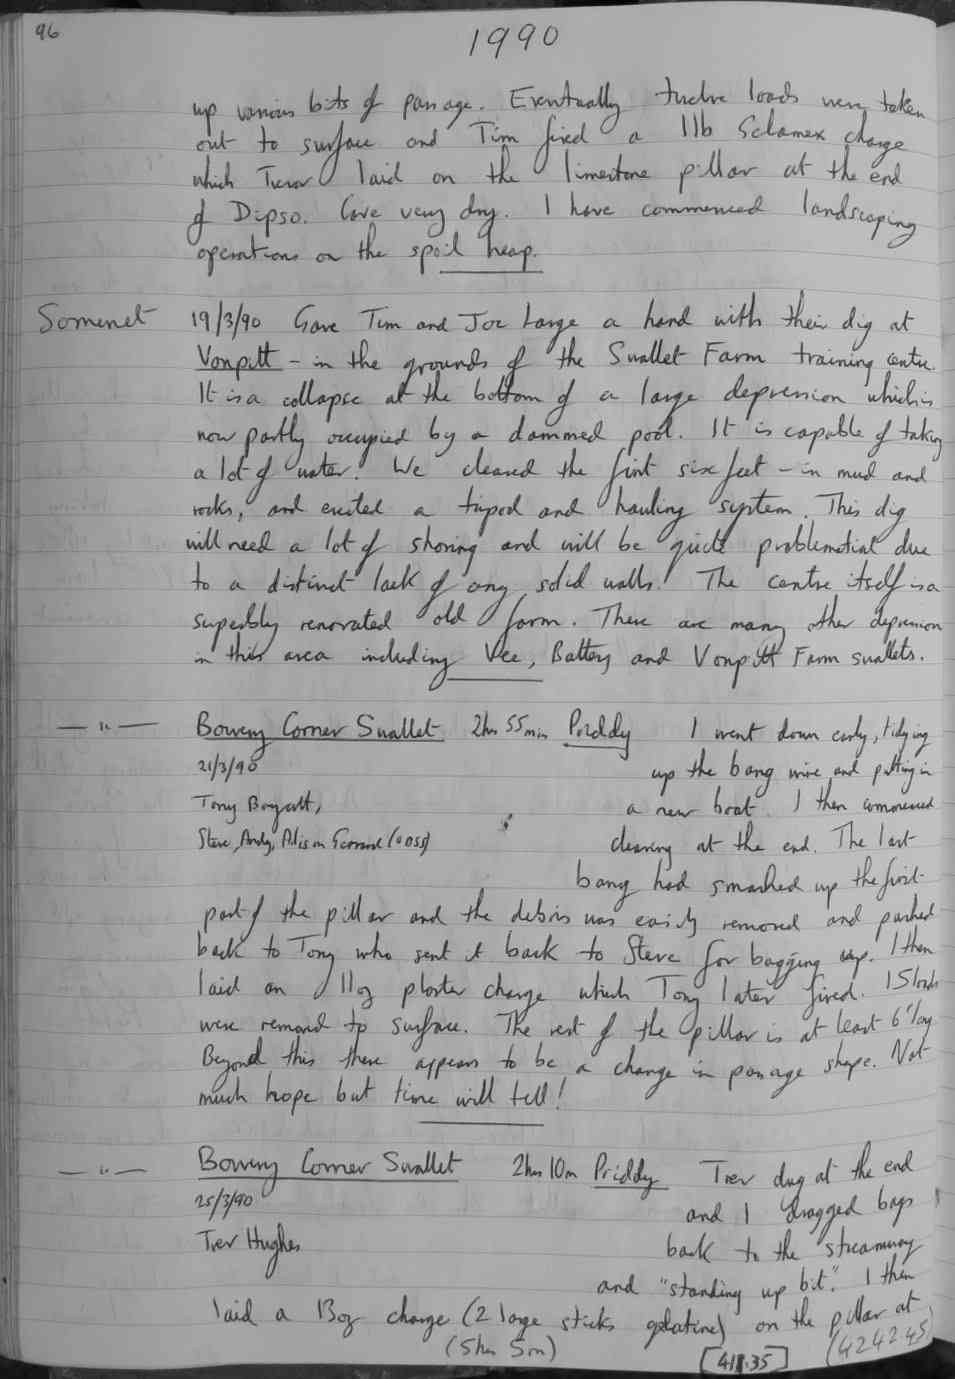 96
1990
up various bits of passage. Eventually twelve loads were taken
out to surface and Tim fired a 1lb Selamex charge
which Trevor laid on the limestone pillar at the end
of Dipso. Cave very dry. I have commenced landscaping
operations on the spoil heap.
Somerset 19/3/90 Gave Tim and Joc Large a hand with their dig at
Vonpitt - in the grounds of the Swallet Farm training centre.
It is a collapse at the bottom of a large depression which is
now partly occupied by a dammed pool. It is capable of taking
a lot of water. We cleared the first six feet - in mud and
rocks, and erected a tripod and hauling system. This dig
will need a lot of shoring and will be quite problematical due
to a distinct lack of any solid walls! The centre itself is a
superbly renovated old farm. There are many other depression
in this area including Vee, Battery and Vonpitt Farm swallets.
— " — Bowery Corner Swallet 2hrs 55min Priddy I went down early, tidying
21/3/90 up the bang wire and putting in
Tony Boycott, a new boat. I then commenced
Steve, Andy, Alison Gerrard (OOSS) clearing at the end. The last
bang had smashed up the first
part of the pillar and the debris was easily removed and pushed
back to Tony who sent it back to Steve for bagging up. I then
laid an 11oz plaster charge which Tony later fired. 15 loads
were removed to surface. The rest of the pillar is at least 6' long
Beyond this there appears to be a change in passage shape. Not
much hope but time will tell!
— " — Bowery Corner Swallet 2hrs 10m Priddy Trev dug at the end
25/3/90 and I dragged bags
Trev Hughes back to the streamway
and "standing up bit". I then
laid a 13oz charge (2 large sticks gelatine) on the pillar at
(5hrs 5m) [411.35] (4242.45)